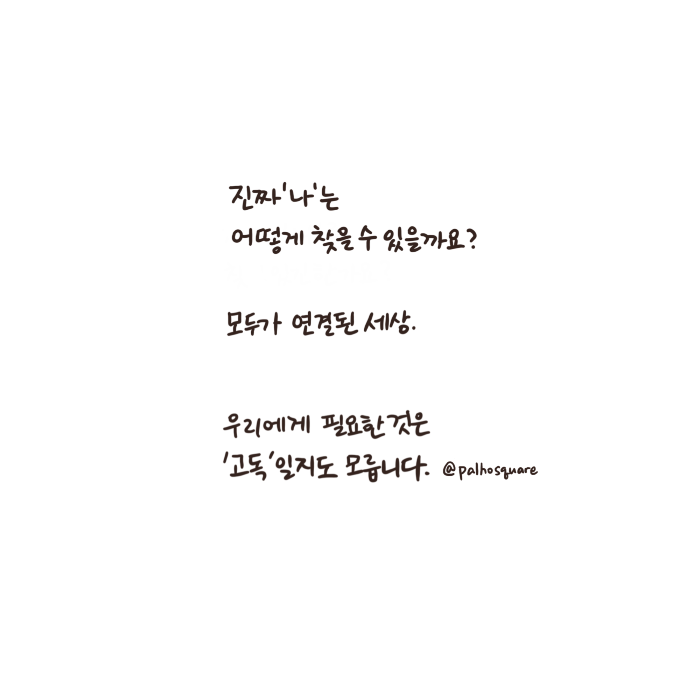 진짜 '나'는
어떻게 찾을 수 있을까요?
모두가 연결된 세상.
우리에게 필요한 것은
'고독'일지도 모릅니다. @palhosquare